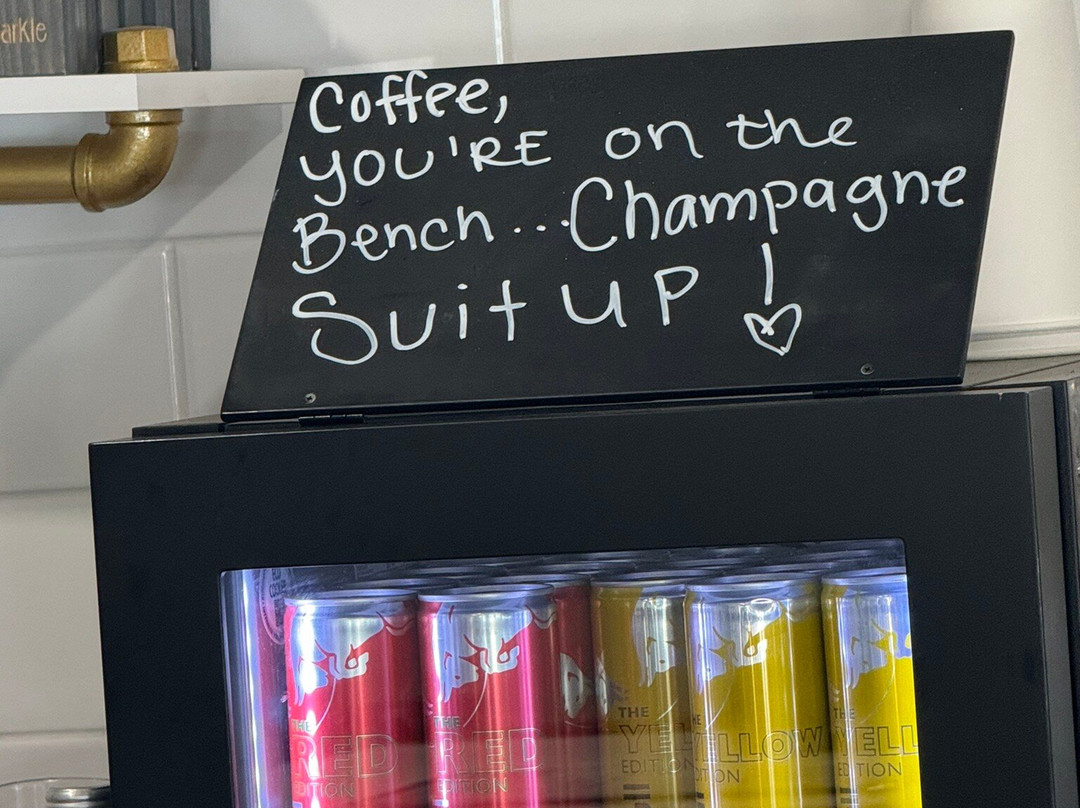 arkle
Coffee,
YOU'RE on the
Bench...Champagne
Suit UP !
THE
RED
EDITION
THE
RED
EDITION
THE
YE
EDITION
THE
YELLOW
EDITION
THE
YELL
EDITION